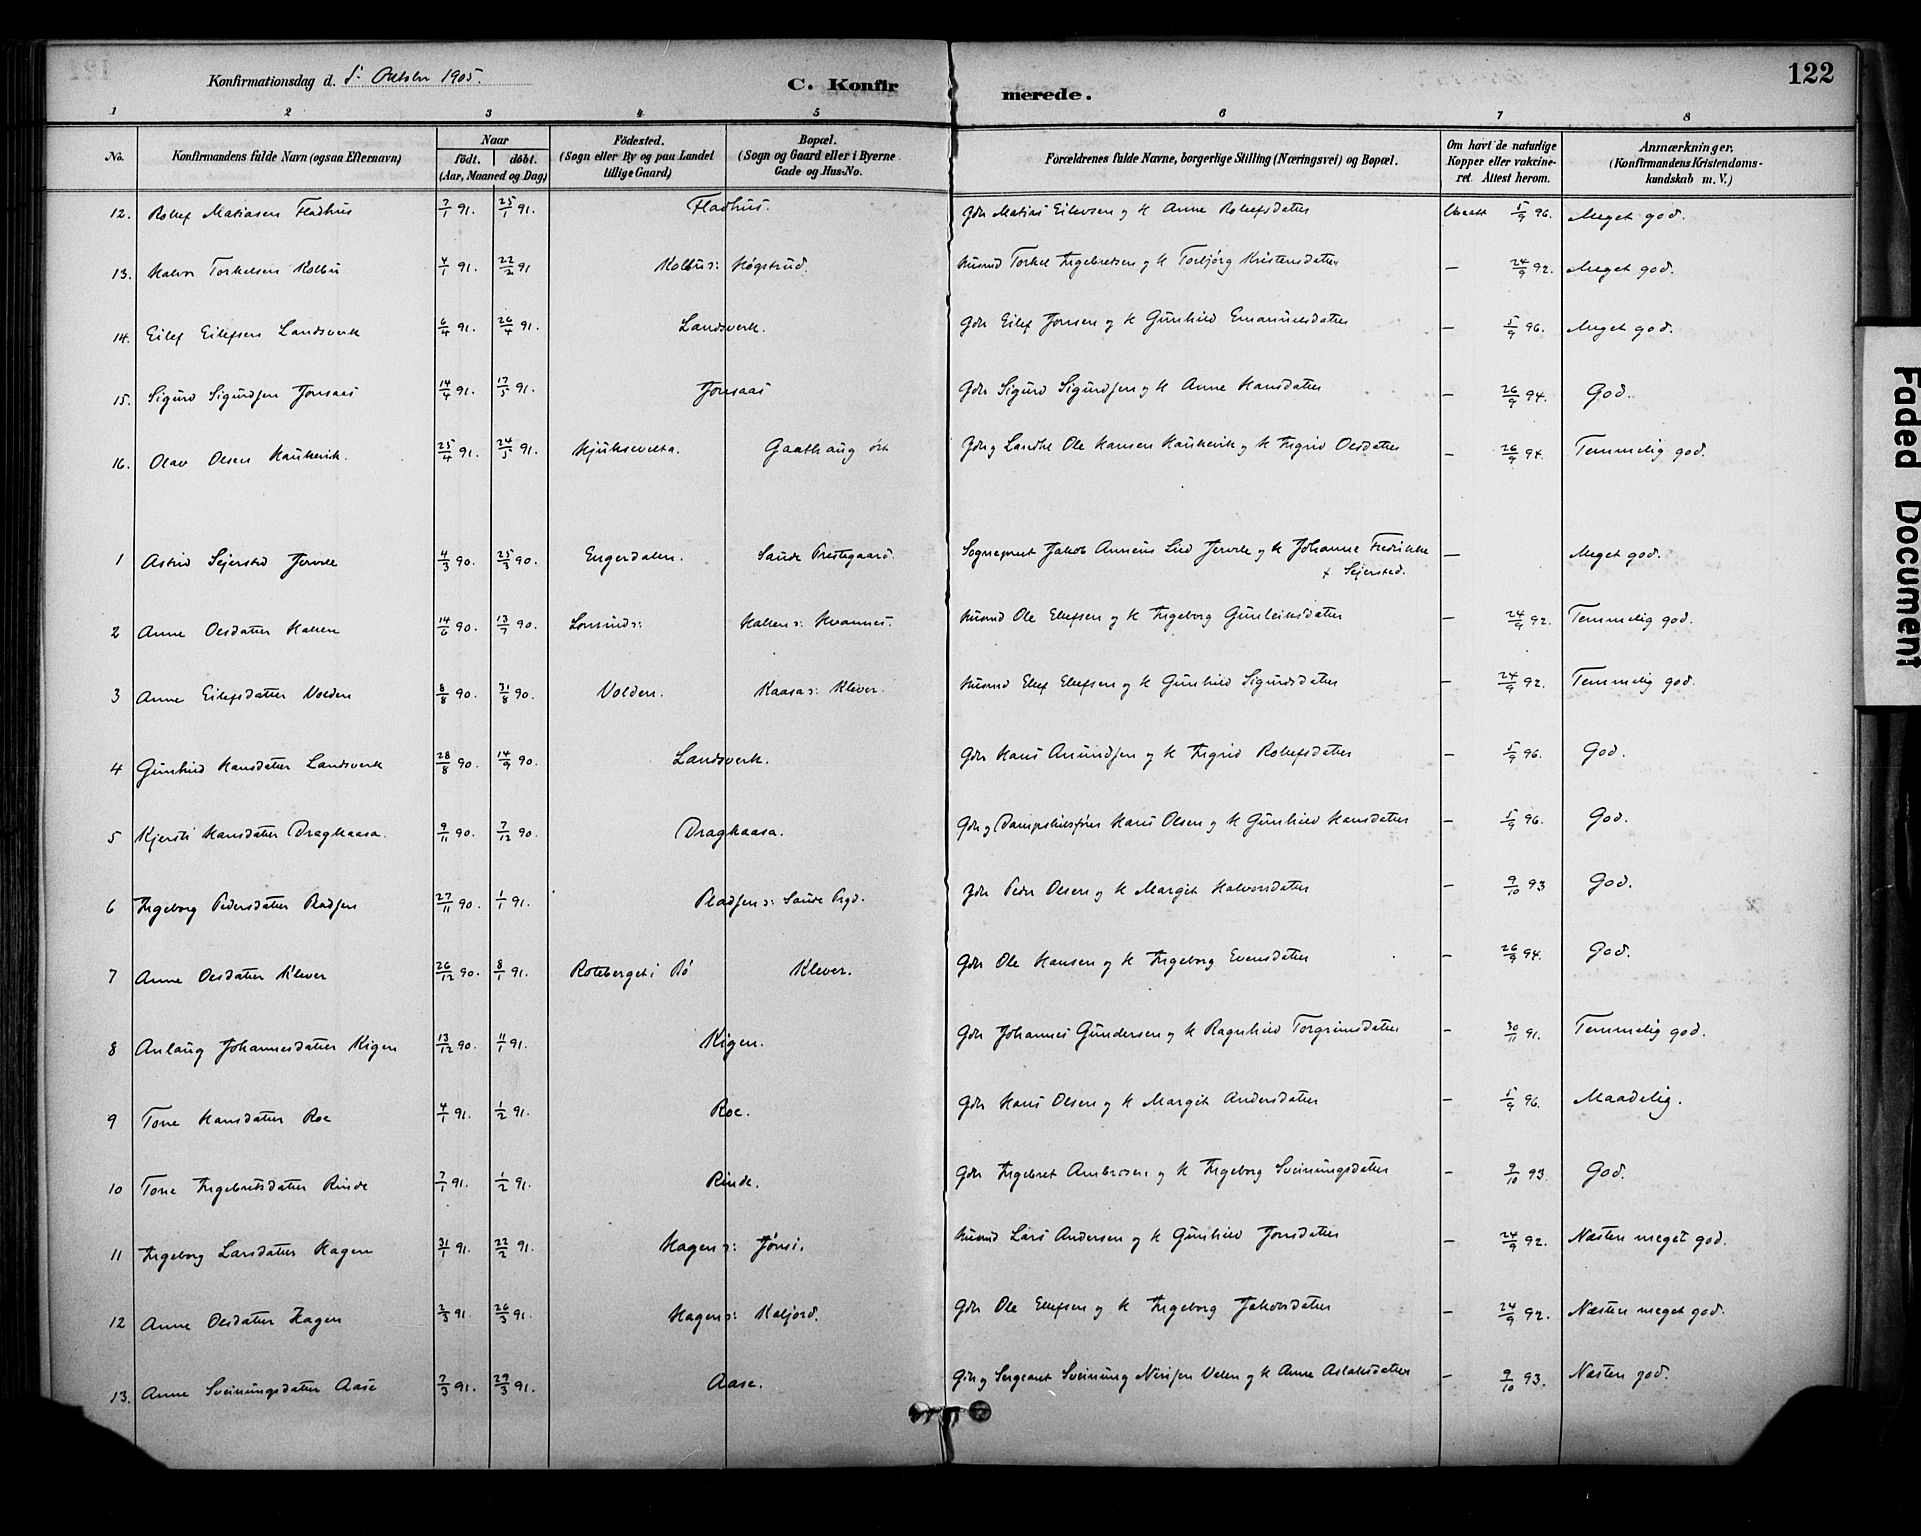 122
Konfirmationsdag d. 8' Oktober 1905.
C. Konfirmerede.
1 2 3 4 5 6 7 8
No. Konfirmandens fulde Navn (ogsaa Efternavn) Naar født. døbt. (Aar, Maaned og Dag) Fødested. (Sogn eller By og paa Landet tillige Gaard) Bopæl. (Sogn og Gaard eller i Byerne Gade og Hus-No. Forældrenes fulde Navne, borgerlige Stilling (Næringsvei) og Bopæl. Om havt de naturlige Kopper eller vakcineret. Attest herom. Anmærkninger. (Konfirmandens Kristendomskundskab m. V.)
12. Rollef Matiasen Fladhus 7/1 91. 25/1 91. Fladhus. Gdr Matias Eilevsen og K Anne Rollefsdatter 5/9 96. Meget god.
13. Halvor Torkelsen Kolbu 4/1 91. 22/2 91 Kolbu s: Høgstrud. Husmd Torkel Ingebretsen og K Torbjørg Kristensdatter — 24/9 92. Meget god.
14. Eilef Eilefsen Landsverk 6/4 91. 26/4 91. Landsverk. Gdr Eilef Jonsen og K Gunhild Emanuelsdatter — 5/9 96. Meget god.
15. Sigurd Sigurdsen Jonsaas 14/4 91. 17/5 91. Jonsaas Gdr Sigurd Sigurdsen og K Anne Hansdatter — 26/9 94. God.
16. Olav Olsen Haukvik. 25/4 91. 24/5 91. Hjuksevelta. Gaathaug Gdr og Landhl Ole Hansen Haukvik og K Ingrid Olsdatter — 26/9 94. Temmelig god.
1 Astrid Sejersted Jervell 4/3 90. 25/3 90. Engerdalen. Saude Prestegaard. Sogneprest Jakob Anneus Lied Jervell og K Johanne Fredrikke
f Sejersted. — Meget god.
2 Anne Olsdatter Haken 14/6 90. 13/7 90. Haken s: Kvannes. Husmd Ole Ellefsen og K Ingeborg Gunleiksdatter — 24/9 92. Temmelig god.
3 Anne Eilefsdatter Volden 8/8 90. 31/8 90. Volden. Kaasa s: Klever. Husmd Ellef Ellefsen og K Gunhild Sigurdsdatter — 24/9 92. Temmelig god.
4 Gunhild Hansdatter Landsverk 28/8 90. 14/9 90. Landsverk. Gdr Hans Amundsen og K Ingrid Rollefsdatter — 5/9 96. God.
5 Kjersti Hansdatter Draghaasa. 9/11 90. 7/12 90. Draghaasa. Gdr og Dampskibsfører Hans Olsen og K Gunhild Hansdatter — 5/9 96. God.
6 Ingeborg Pedersdatter Pladsen 27/11 90. 1/1 91. Pladsen s: Saude Prgd. Gdr Peder Olsen og K Margit Halvorsdatter — 9/10 93 God.
7 Anne Olsdatter Klever 26/12 90. 8/1 91. Roteberget i Bø Klever. Gdr Ole Hansen og K Ingeborg Evensdatter — 26/9 94. God.
8 Anlaug Johannesdatter Kigen 13/12 90. 11/1 91. Kigen. Gdr Johannes Gundersen og K Ragnhild Torgrimsdatter — 30/11 91. Temmelig god.
9 Tone Hansdatter Roe 4/1 91. 1/2 91. Roe. Gdr Hans Olsen og K Margit Andersdatter — 5/9 96. Maadelig.
10 Tone Ingebretsdatter Rinde 7/1 91. 1/2 91. Rinde. Gdr Ingebret Ambrosen og K Ingeborg Sveinungsdatter — 9/10 93. God.
11 Ingeborg Larsdatter Hagen 31/1 91. 22/2 91. Hagen s: Jønsi. Husmd Lars Andersen og K Gunhild Jonsdatter — 24/9 92. Næsten meget god.
12 Anne Olsdatter Hagen 2/3 91. 26/3 91. Hagen s: Haljord. Gdr Ole Ellefsen og K Ingeborg Jakobsdatter — 24/9 92. Næsten meget god.
13. Anne Sveinungsdatter Aase 7/3 91. 29/3 91. Aase. Gdr og Sergeant Sveinung Nirisen Valen og K Anne Aslaksdatter — 9/10 93. Næsten god.
Faded Document